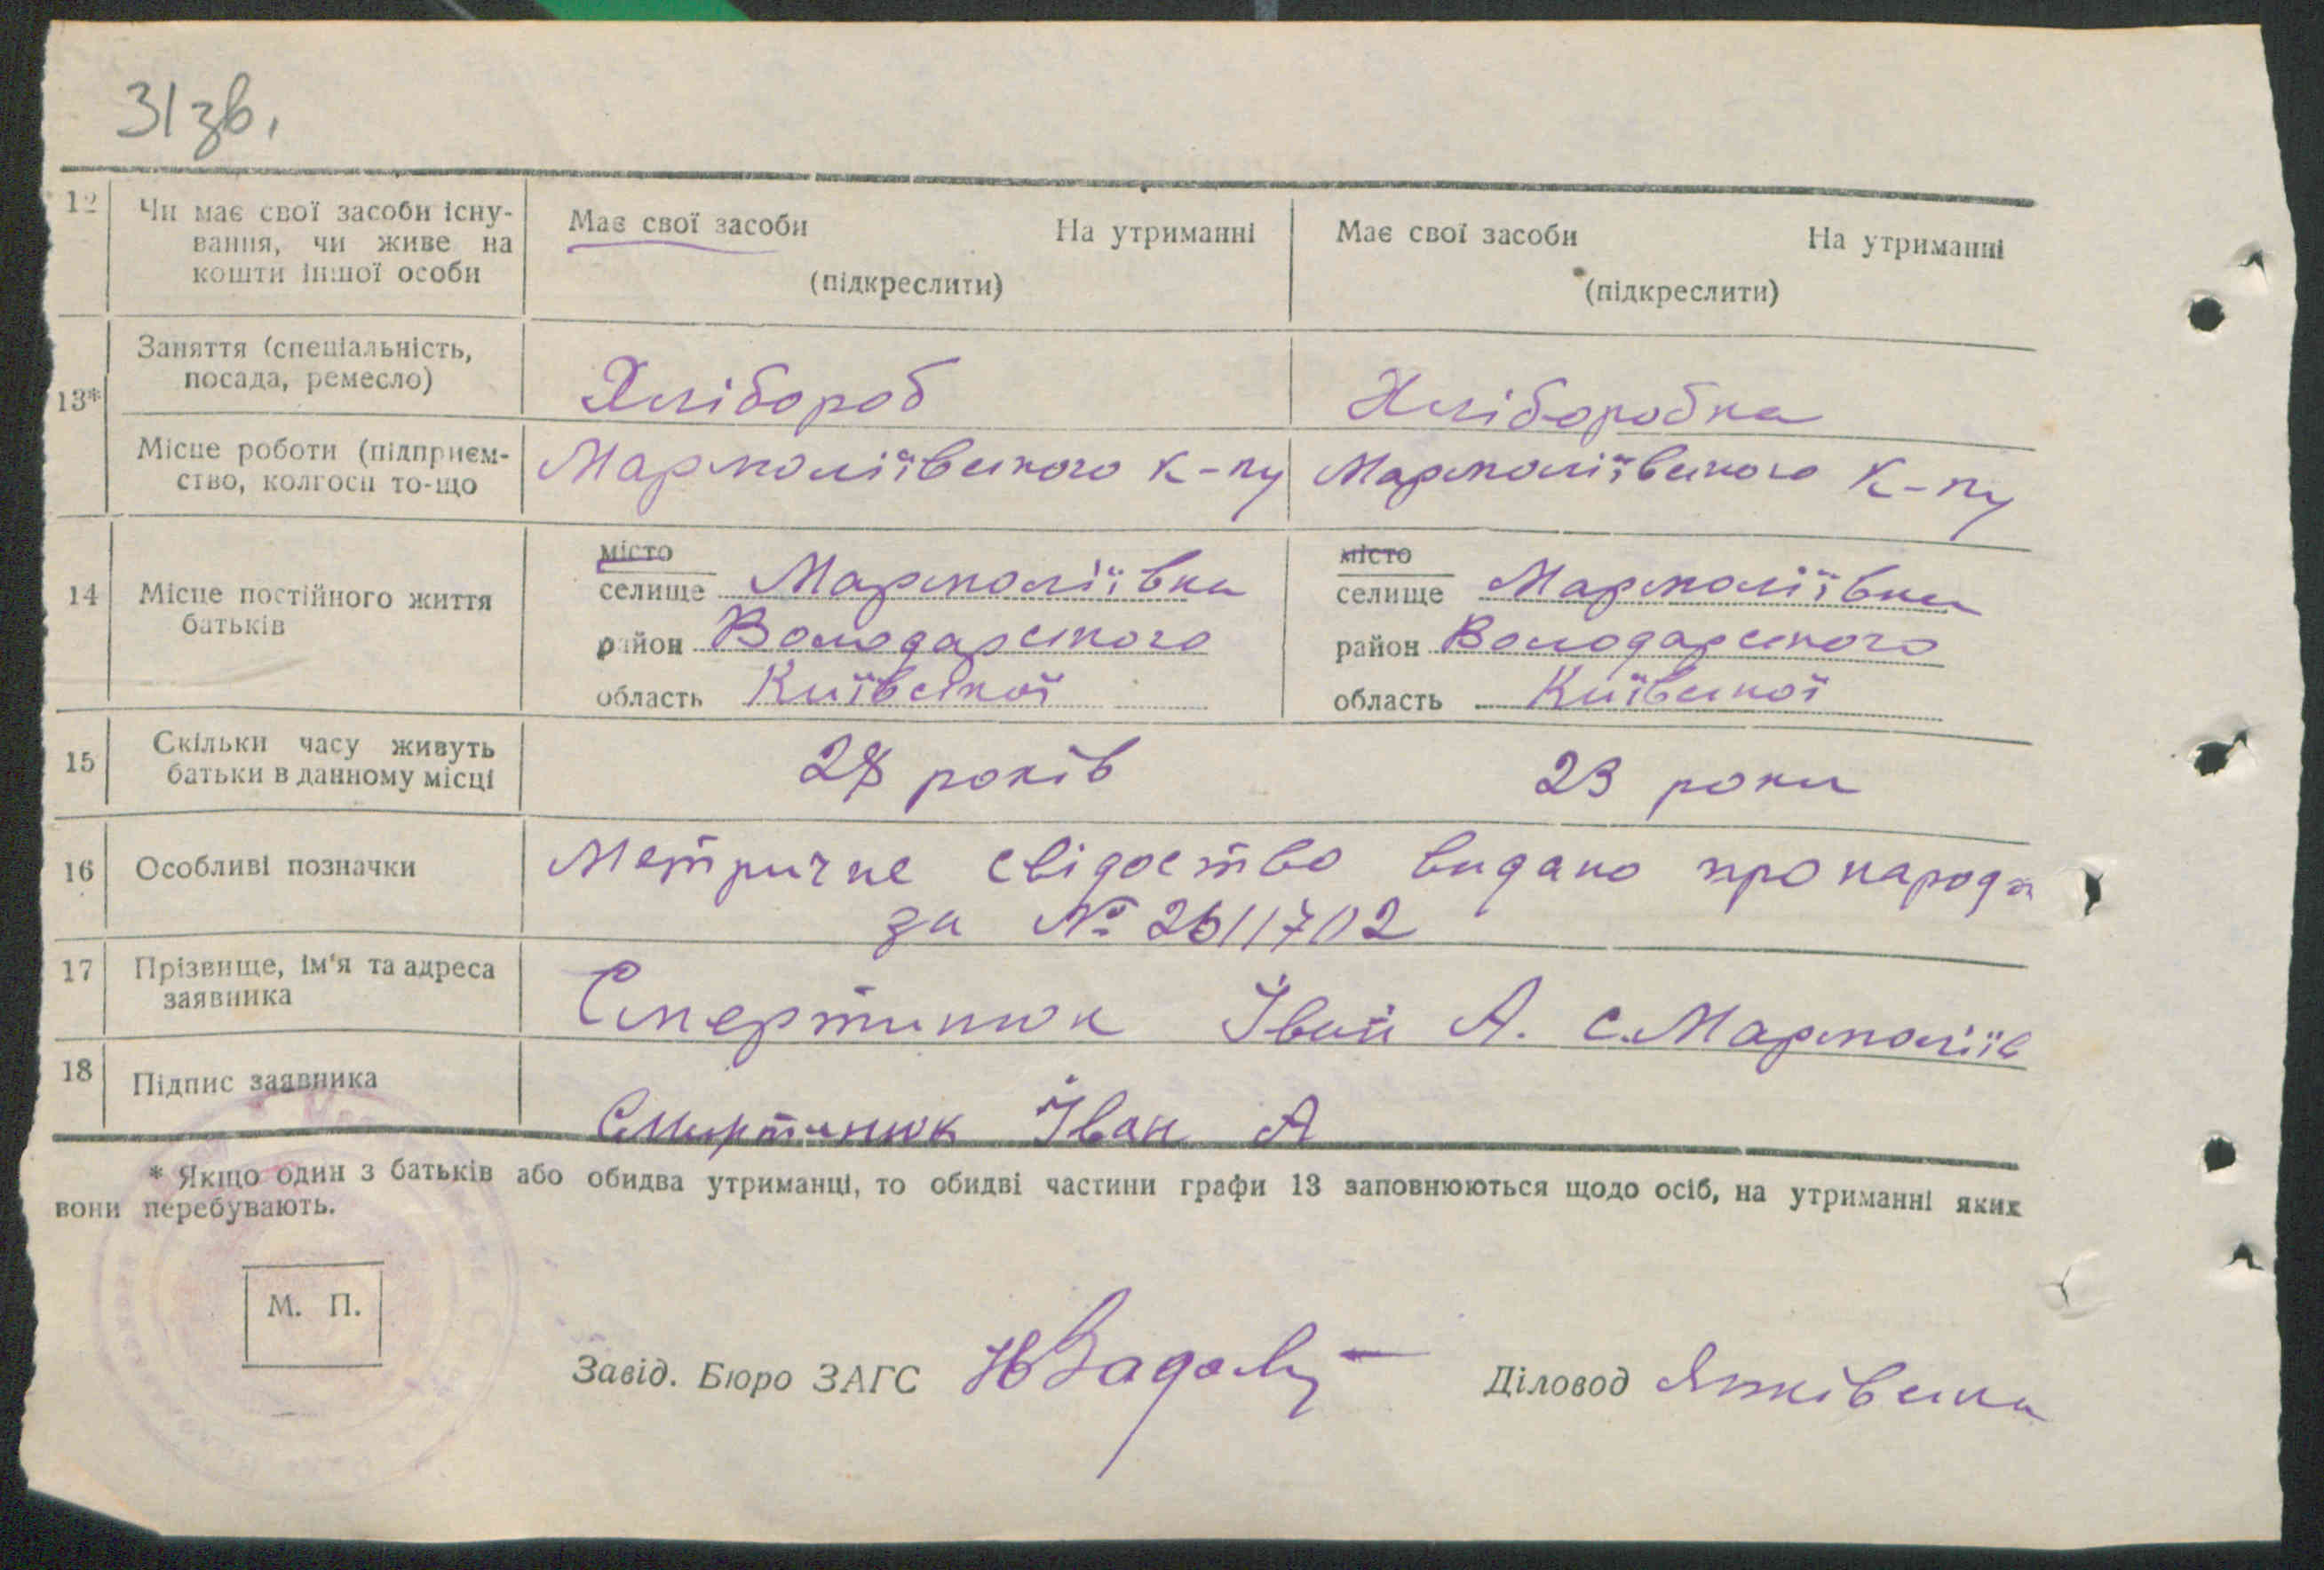 31 зв.
12 Чи має свої засоби існу-
вання, чи живе на
кошти іншої особи
Має свої засоби На утриманні
(підкреслити)
Має свої засоби На утриманні
(підкреслити)
13* Заняття (спеціальність,
посада, ремесло)
Хлібороб
Хліборобка
Місце роботи (підприєм-
ство, колгосп то-що
Мармоліївського к-пу
Мармоліївського к-пу
14 Місце постійного життя
батьків
місто
селище Мармоліївка
район Володарського
область Київської
місто
селище Мармоліївка
район Володарського
область Київської
15 Скільки часу живуть
батьки в данному місці
28 років
23 роки
16 Особливі позначки
Метричне свідоство видано про народж
за № 2611702
17 Прізвище, ім'я та адреса
заявника
Смертинюк Іван А. с. Мармоліїв
18 Підпис заявника
Смертинюк Іван А
* Якщо один з батьків або обидва утриманці, то обидві частини графи 13 заповнюються щодо осіб, на утриманні яких
вони перебувають.
М. П.
Завід. Бюро ЗАГС
Діловод